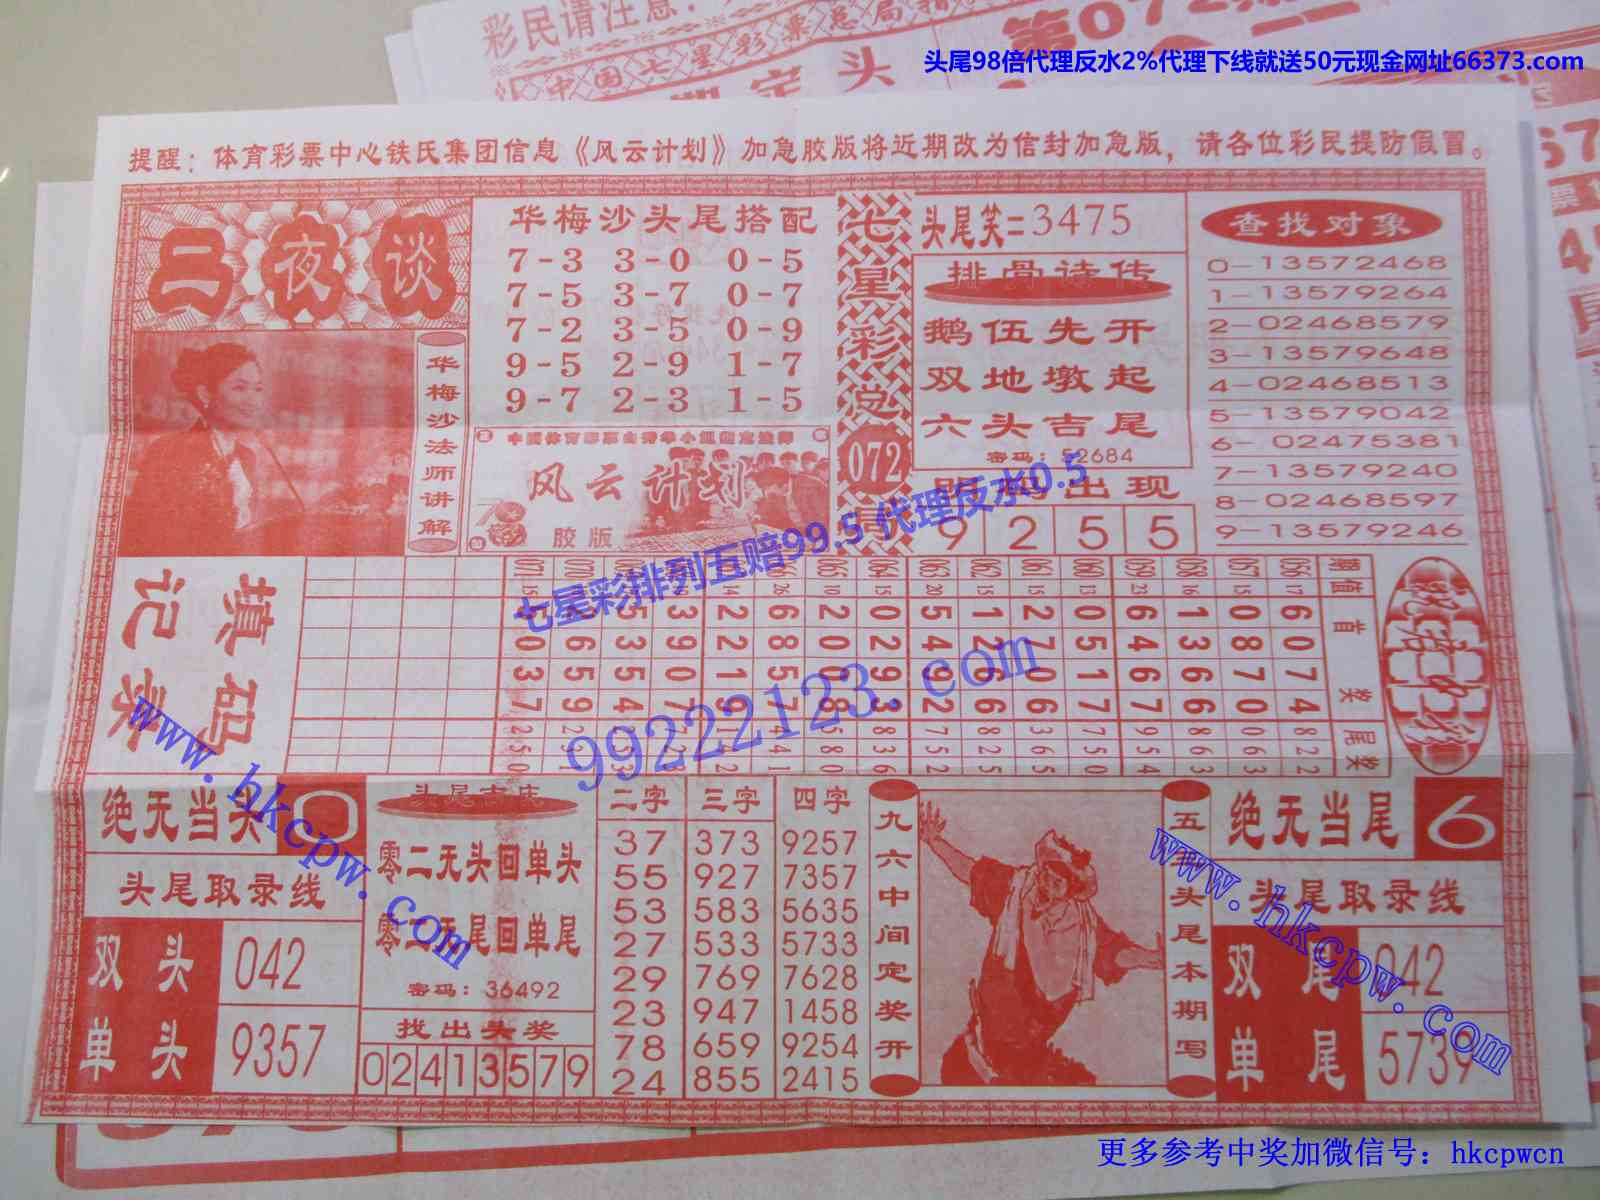 彩民请注意：
中国七星彩票总局
第072
定头
头尾98倍代理反水2%代理下线就送50元现金网址66373.com
提醒：体育彩票中心铁氏集团信息《风云计划》加急胶版将近期改为信封加急版，请各位彩民提防假冒。
二夜谈
华梅沙法师讲解
华梅沙头尾搭配
7-3 3-0 0-5
7-5 3-7 0-7
7-2 3-5 0-9
9-5 2-9 1-7
9-7 2-3 1-5
风云计划
胶版
七星彩
072
头尾笑二3475
排骨诗传
鹅伍先开
双地墩起
六头吉尾
密码：52684
出现
9255
查找对象
0-13572468
1-13579264
2-02468579
3-13579648
4-02468513
5-13579042
6-02475381
7-13579240
8-02468597
9-13579246
七星彩排列五赔99.5 代理反水0.5
填码记录
期 值 首奖 尾奖
056 17 6074 822
057 15 0870 063
058 16 1366 863
059 23 6467 954
060 13 0517 750
061 15 2706 365
062 15 1266 825
063 20 5492 752
064 0293 836
065 10 2008 580
26 6857 441
2219
3907
5354
6659
071 15 5037 250
99222123.com
www.hkcpw.com
绝无当头 0
头尾取录线
双头 042
单头 9357
头尾吉庆
零二无头回单头
零二无尾回单尾
密码：36492
找出头奖
02413579
二字 三字 四字
37 373 9257
55 927 7357
53 583 5635
27 533 5733
29 769 7628
23 947 1458
78 659 9254
24 855 2415
九六中间定奖开
五 头尾本期写
绝无当尾 6
头尾取录线
双尾 042
单尾 5739
www.hkcpw.com
更多参考中奖加微信号：hkcpwcn